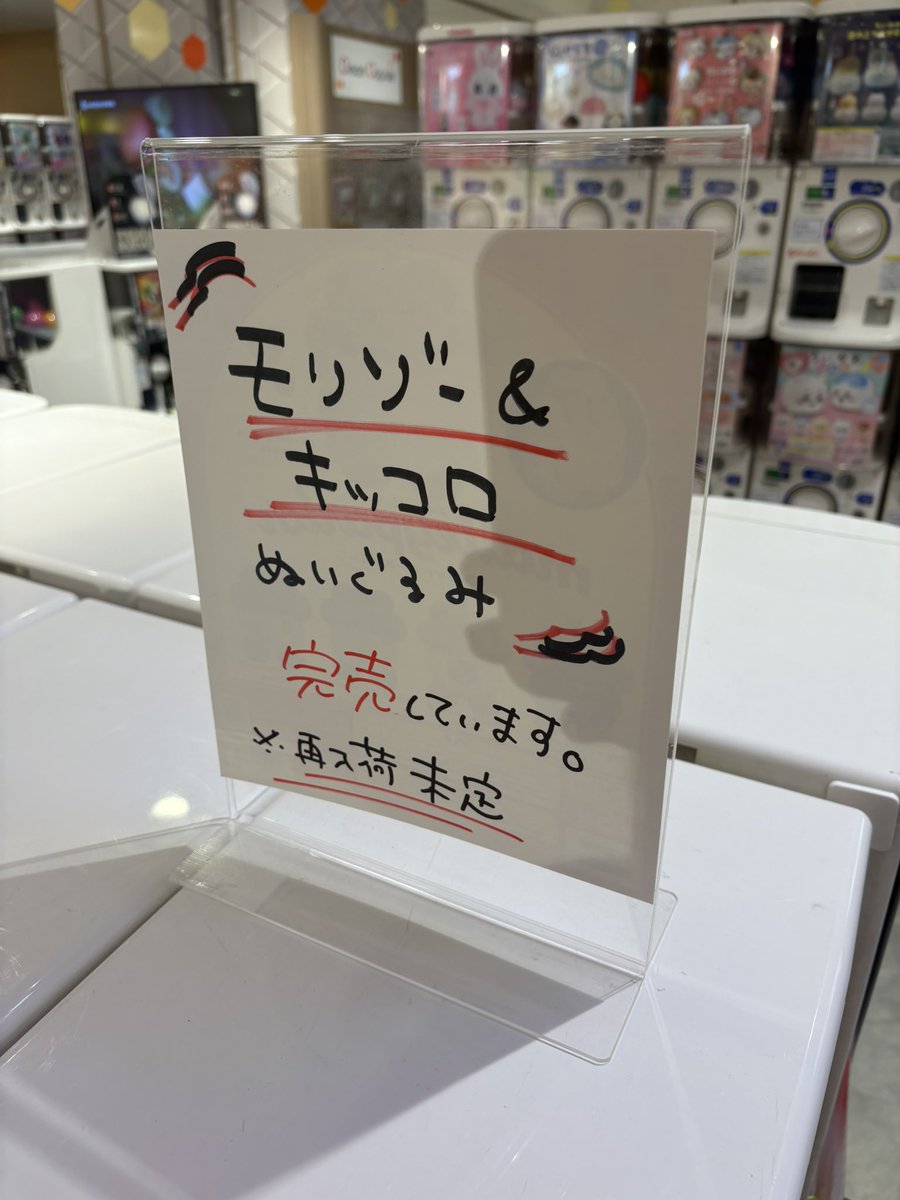 モリゾー&
キッコロ
ぬいぐるみ
完売しています。
※再入荷未定